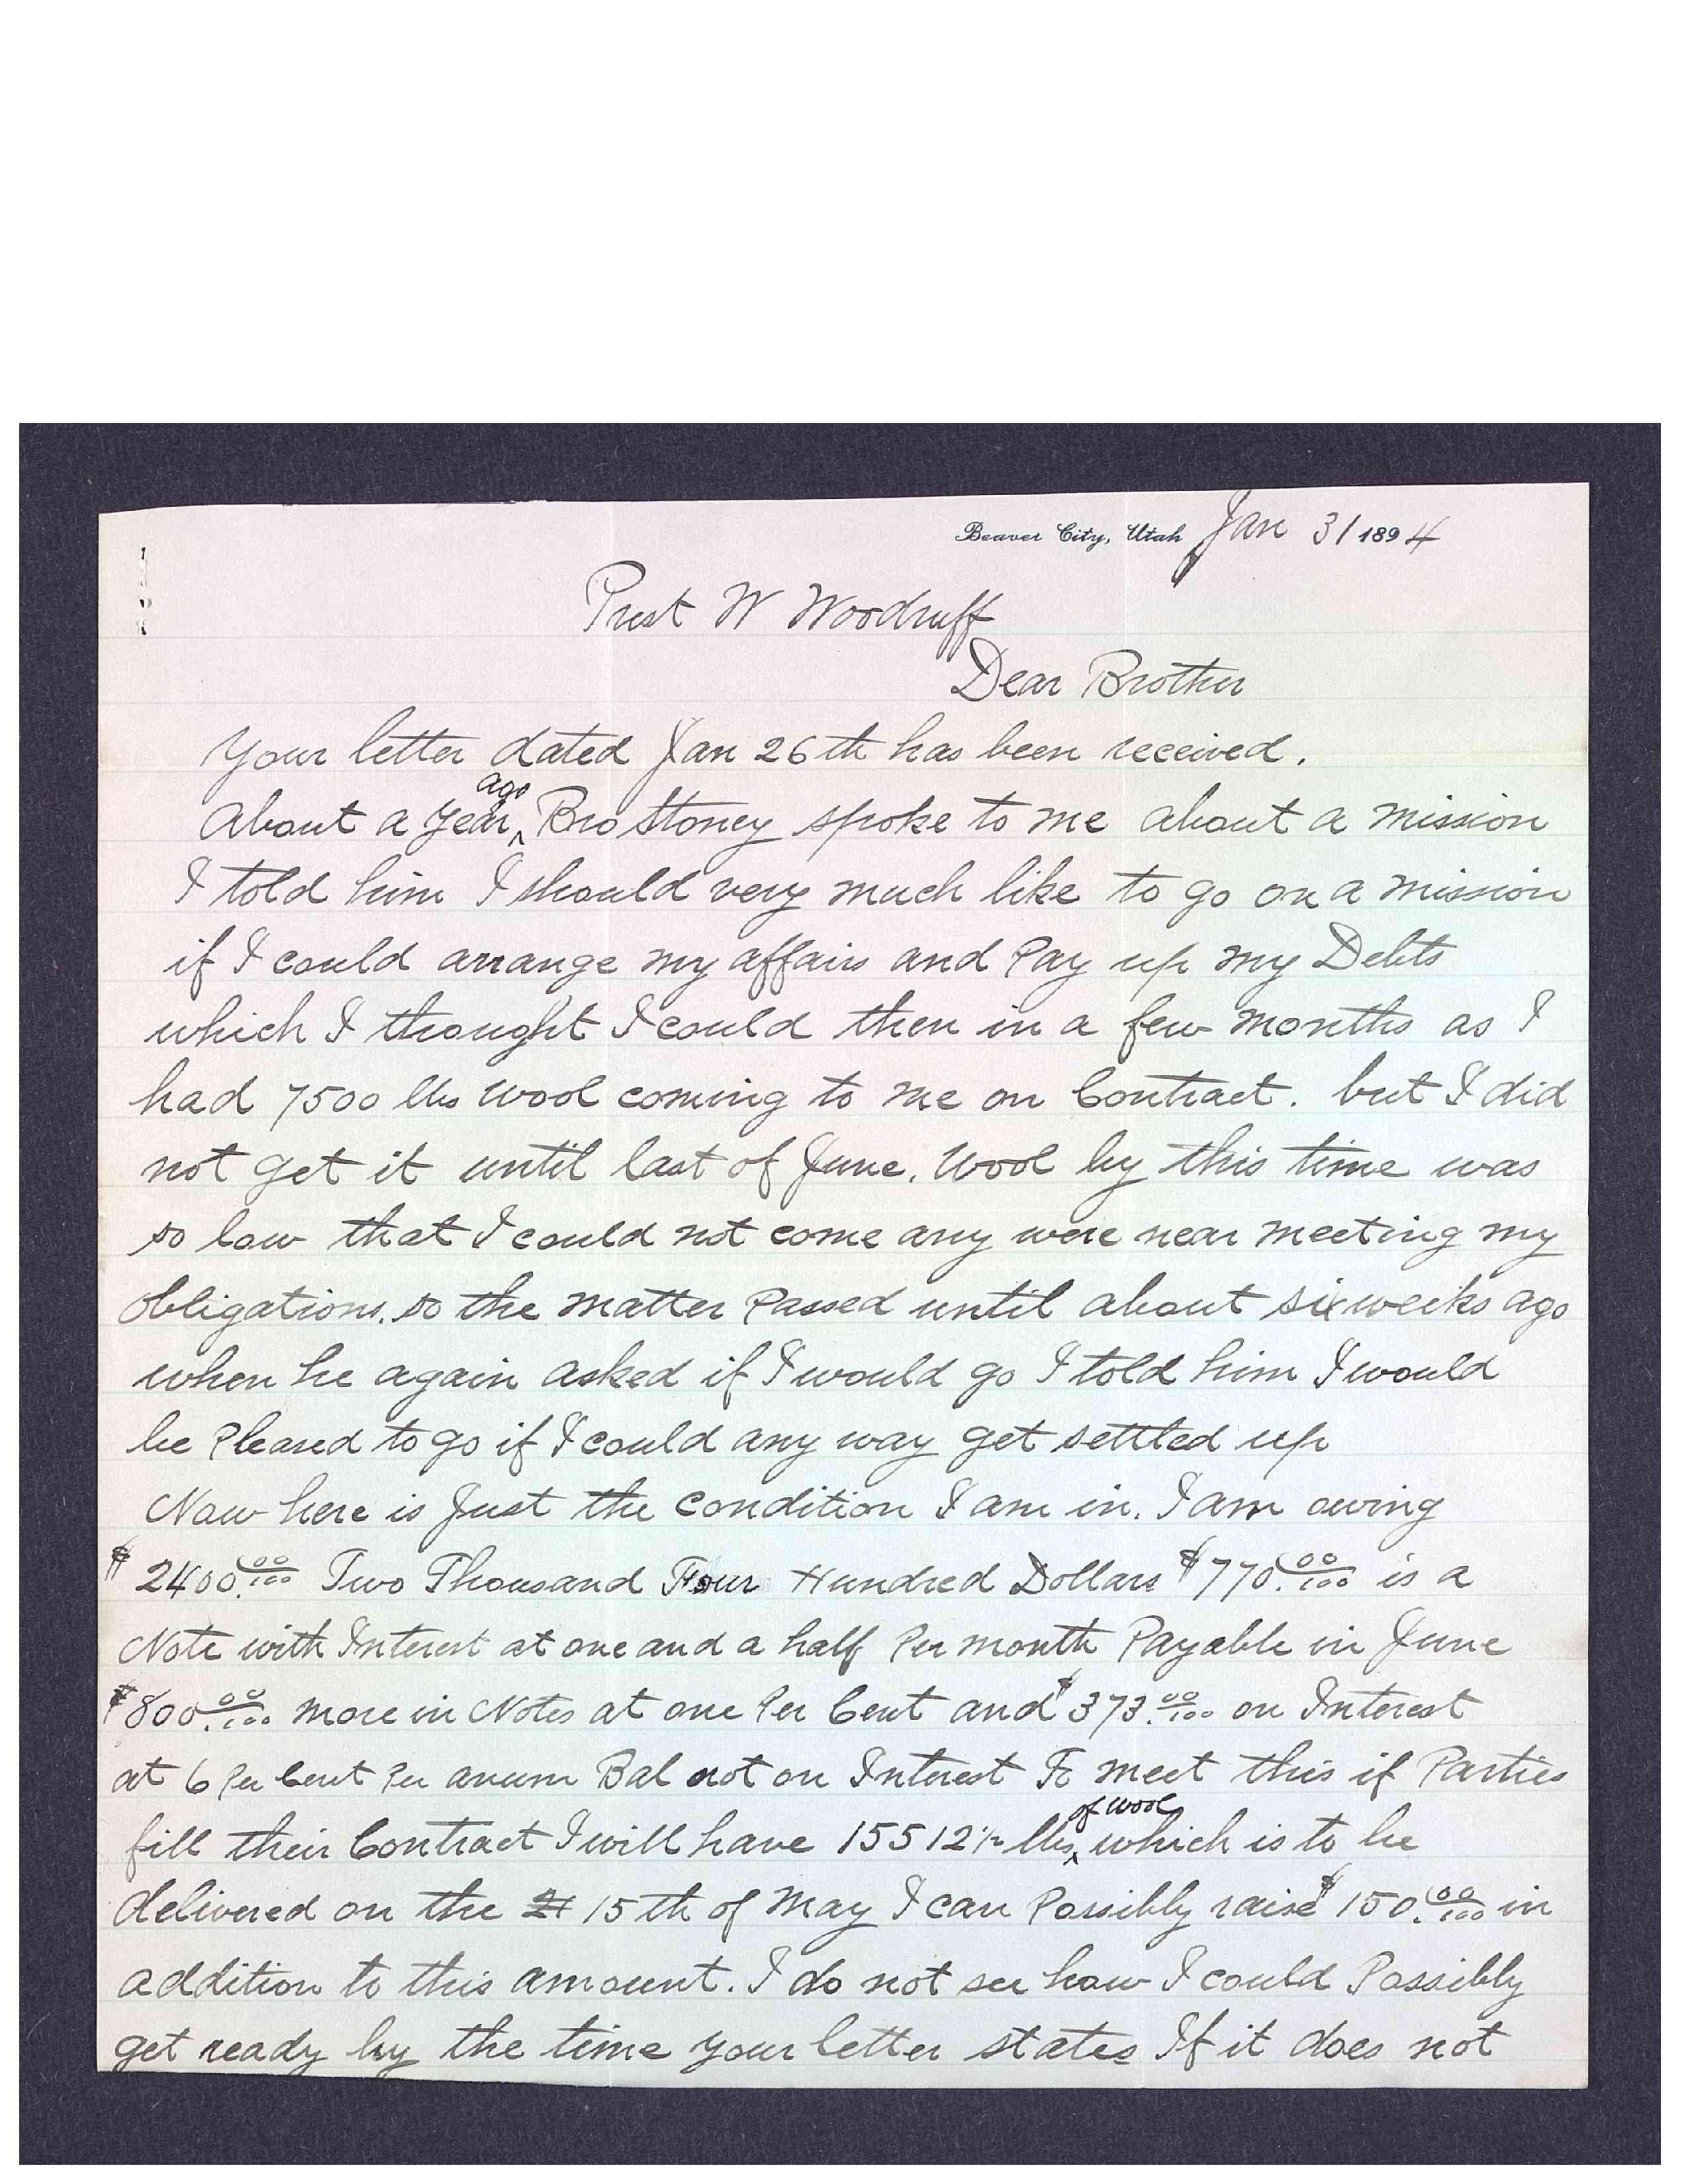 Beaver City, Utah Jan 31 1894
Prest W Woodruff
Dear Brother
Your letter dated Jan 26th has been received.
About a year ago Bro Stoney spoke to me about a mission
I told him I should very much like to go on a mission
if I could arrange my affairs and Pay up my Debts
which I thought I could then in a few months as I
had 7500 lbs wool coming to me on Contract. but I did
not get it until last of June. Wool by this time was
so low that I could not come any were near meeting my
obligations. so the matter Passed until about six weeks ago
when he again asked if I would go I told him I would
be Pleased to go if I could any way get settled up
Now here is Just the condition I am in. I am owing
$2400.00/100 Two Thousand Four Hundred Dollars $770.00/100 is a
Note with Interest at one and a half Per month Payable in June
$800.00/100 more in Notes at one Per Cent and $373.00/100 on Interest
at 6 Per Cent Per anum Bal not on Interest To meet this if Parties
fill their Contract I will have 15512 1/2 lbs of wool which is to be
delivered on the 15th of May I can Possibly raise $150.00/100 in
addition to this amount. I do not see how I could Possibly
get ready by the time your letter states If it does not